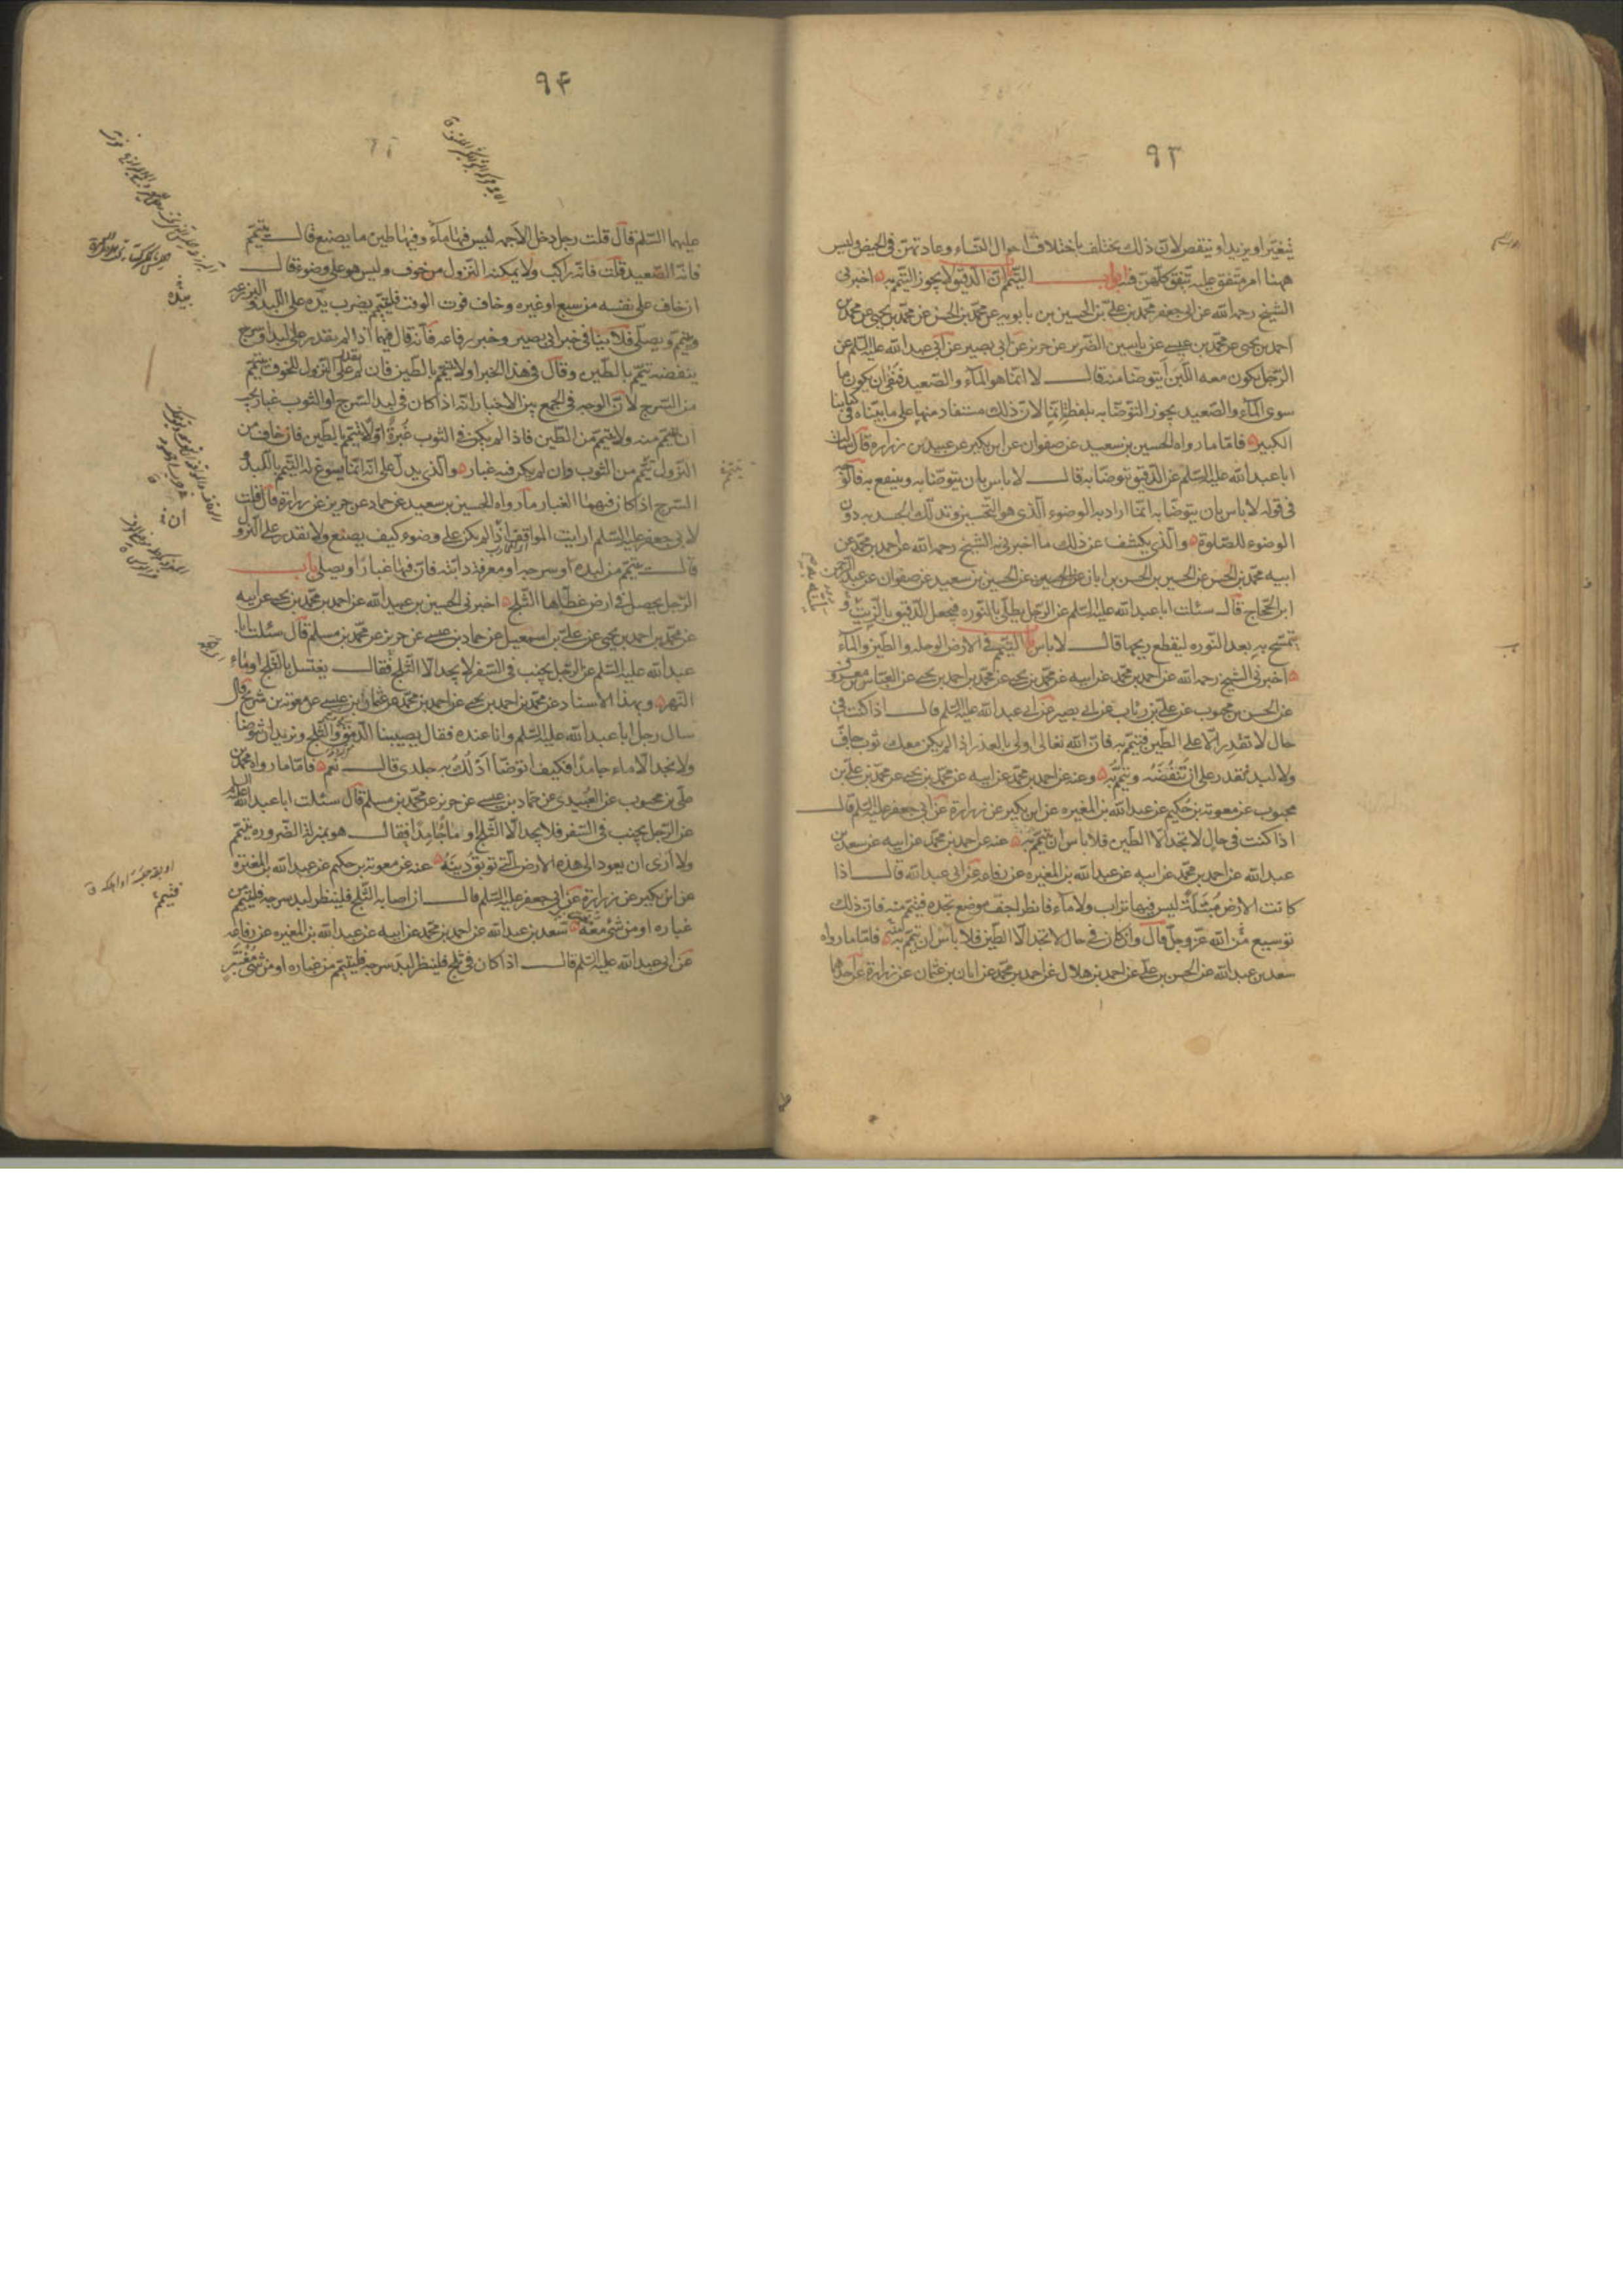 ٩٣
يتغيّر او يزيد او ينقص لانّ ذلك يختلف باختلاف احوال النساء وعادتهنّ فى الحيض وليس
ههنا امر متفق عليه يتفق كلّهنّ فيه باب انّ الدقيق لا يجوز التيمّم به اخبرنى
الشيخ رحمه الله عن ابى جعفر محمّد بن علىّ بن الحسين بن بابويه عن محمّد بن الحسن عن محمّد بن يحيى عن محمّد بن
احمد بن يحيى عن محمّد بن عيسى عن ياسين الضرير عن حريز عن ابى بصير عن ابى عبد الله عليه السّلم عن
الرّجل يكون معه اللّبن أيتوضّا منه قال لا انّما هو المآء والصّعيد فنفى ان يكون ما
سوى المآء والصّعيد يجوز التوضّا به بلفظة انّما لانّ ذلك مستفاد منها على ما بيّناه فى كتابنا
الكبير فامّا ما رواه الحسين بن سعيد عن صفوان عن ابن بكير عن عبيد بن زرارة قال سالت
ابا عبد الله عليه السّلم عن الدّقيق يتوضّا به قال لا باس بان يتوضّا به وينتفع به فالوجه
فى قوله لا باس بان يتوضّا به انّما اراد به الوضوء الّذى هو التحسين وتدلّك الجسد به دون
الوضوء للصّلوة والّذى يكشف عن ذلك ما اخبرنى به الشيخ رحمه الله عن احمد بن محمّد عن
ابيه محمّد بن الحسن عن الحسين بن الحسن بن ابان عن الحسين بن سعيد عن صفوان عن عبد الرحمن
ابن الحجّاج قال سئلت ابا عبد الله عليه السّلم عن الرّجل يطلّى بالنّوره فيجعل الدّقيق بالزّيت
يتمسّح به بعد النّوره ليقطع ريحها قال لا باس باب التيمّم فى الارض الوحله والطّين والمآء
اخبرنى الشيخ رحمه الله عن احمد بن محمّد عن ابيه عن محمّد بن يحيى عن محمّد بن احمد بن يحيى عن العبّاس بن معروف
عن الحسن بن محبوب عن علىّ بن رئاب عن ابى بصير عن ابى عبد الله عليه السّلم قال اذا كنت فى
حال لا تقدر الّا على الطّين فتيمّم به فانّ الله تعالى اولى بالعذر اذا لم يكن معك ثوب جافّ
ولا لبد تقدر على ان تنفضه وتتيمّم به وعنه عن احمد بن محمّد عن ابيه عن محمّد بن يحيى عن محمّد بن علىّ بن
محبوب عن معوية بن حكيم عن عبد الله بن المغيره عن ابن بكير عن زرارة عن ابى جعفر عليه السّلم قال
اذا كنت فى حال لا تجد الّا الطّين فلا باس ان تتيمّم به عنه عن احمد بن محمّد عن ابيه عن سعد بن
عبد الله عن احمد بن محمّد عن ابيه عن عبد الله بن المغيره عن رفاعة عن ابى عبد الله قال اذا
كانت الارض مبتلّة ليس فيها تراب ولا مآء فانظر اجفّ موضع تجده فتيمّم منه فانّ ذلك
توسيع من الله عزّ وجلّ قال وان كان فى حال لا تجد الّا الطّين فلا باس ان تتيمّم به فامّا ما رواه
سعد بن عبد الله عن الحسن بن علىّ عن احمد بن هلال عن احمد بن محمّد عن ابان بن عثمان عن زرارة عن احدهما
٩۴
عليهما السّلم قال قلت رجل دخل الاجمه ليس فيها مآء وفيها طين ما يصنع قال يتيمّم
فانّه الصّعيد قلت فانّه راكب ولا يمكنه النزول من خوف وليس هو على وضوء قال
ان خاف على نفسه من سبع او غيره وخاف فوت الوقت فليتيمّم يضرب يده على اللّبد والبرذعه
ويتيمّم ويصلّى فلا ينافى خبر ابى بصير وخبر رفاعه فانّه قال فيهما اذا لم يقدر على لبد او سرج
ينفضه تيمّم بالطّين وقال فى هذا الخبر اولا يتيمّم بالطّين فان لم يقدر على النزول للخوف تيمّم
من السّرج لانّ الوجه فى الجمع بين الاخبار انّه اذا كان فى لبد السّرج او الثوب غبار يجب
ان يتيمّم منه ولا يتيمّم من الطّين فاذا لم يكن فى الثوب غبرة اوّلا يتيمّم بالطّين فان خاف من
النزول تيمّم من الثوب وان لم يكن فيه غبار والّذى يدلّ على انّه انّما يسوغ له التيمّم باللّبد و
السّرج اذا كان فيهما الغبار ما رواه الحسين بن سعيد عن حماد عن حريز عن زرارة قال قلت
لابى جعفر عليه السّلم ارايت المواقف اذا لم يكن على وضوء كيف يصنع ولا يقدر على النزو
قال يتيمّم من لبده او سرجه او معرفة دابّته فانّ فيها غبارا ويصلى باب
الرّجل يحصل فى ارض غطّاها الثّلج اخبرنى الحسين بن عبيد الله عن احمد بن محمّد بن يحيى عن ابيه
عن محمّد بن احمد بن يحيى عن علىّ بن اسمعيل عن حماد بن عيسى عن حريز عن محمّد بن مسلم قال سئلت ابا
عبد الله عليه السّلم عن الرّجل يجنب فى السّفر لا يجد الّا الثّلج فقال يغتسل بالثّلج او ماء
النّهر وبهذا الاسناد عن محمّد بن احمد بن يحيى عن احمد بن محمّد عن عثمان بن عيسى عن معوية بن شريح قال
سال رجل ابا عبد الله عليه السّلم وانا عنده فقال يصيبنا الدّمق والثّلج ونريد ان نتوضّا
ولا نجد الّا ماء جامدا فكيف اتوضّأ ادلك به جلدى قال نعم فامّا ما رواه محمّد بن
على بن محبوب عن العبيدى عن حمّاد بن عيسى عن حريز عن محمّد بن مسلم قال سئلت ابا عبد الله عليه
عن الرّجل يجنب فى السّفر فلا يجد الّا الثّلج او ماء جامدا فقال هو بمنزلة الضّروره يتيمّم
ولا ارى ان يعود الى هذه الارض الّتى توبق دينه عنه عن معوية بن حكيم عن عبد الله بن المغيرة
عن ابن بكير عن زرارة عن ابى جعفر عليه السّلم قال ان اصابه الثّلج فلينظر لبد سرجه فليتيمّم من
غباره او من شىء معه سعد بن عبد الله عن احمد بن محمّد عن ابيه عن عبد الله بن المغيره عن رفاعه
عن ابى عبد الله عليه السّلم قال اذا كان فى ثلج فلينظر لبد سرجه فليتيمّم من غباره او من شىء مغبّر